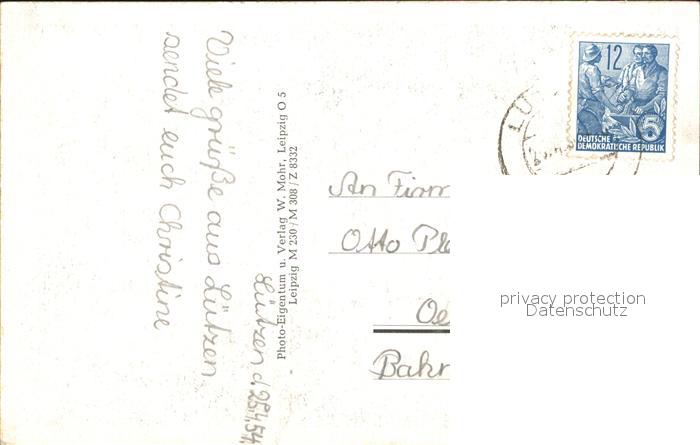 Lützen d. 25.4.54.
Viele grüße aus Lützen
sendet euch Christine
Photo-Eigentum u. Verlag W. Mohr, Leipzig O 5
Leipzig M 230 / M 308 / Z 8332
12
5
DEUTSCHE
DEMOKRATISCHE REPUBLIK
LÜ
An Firm
Otto Ple
Oe
Bahn
privacy protection
Datenschutz